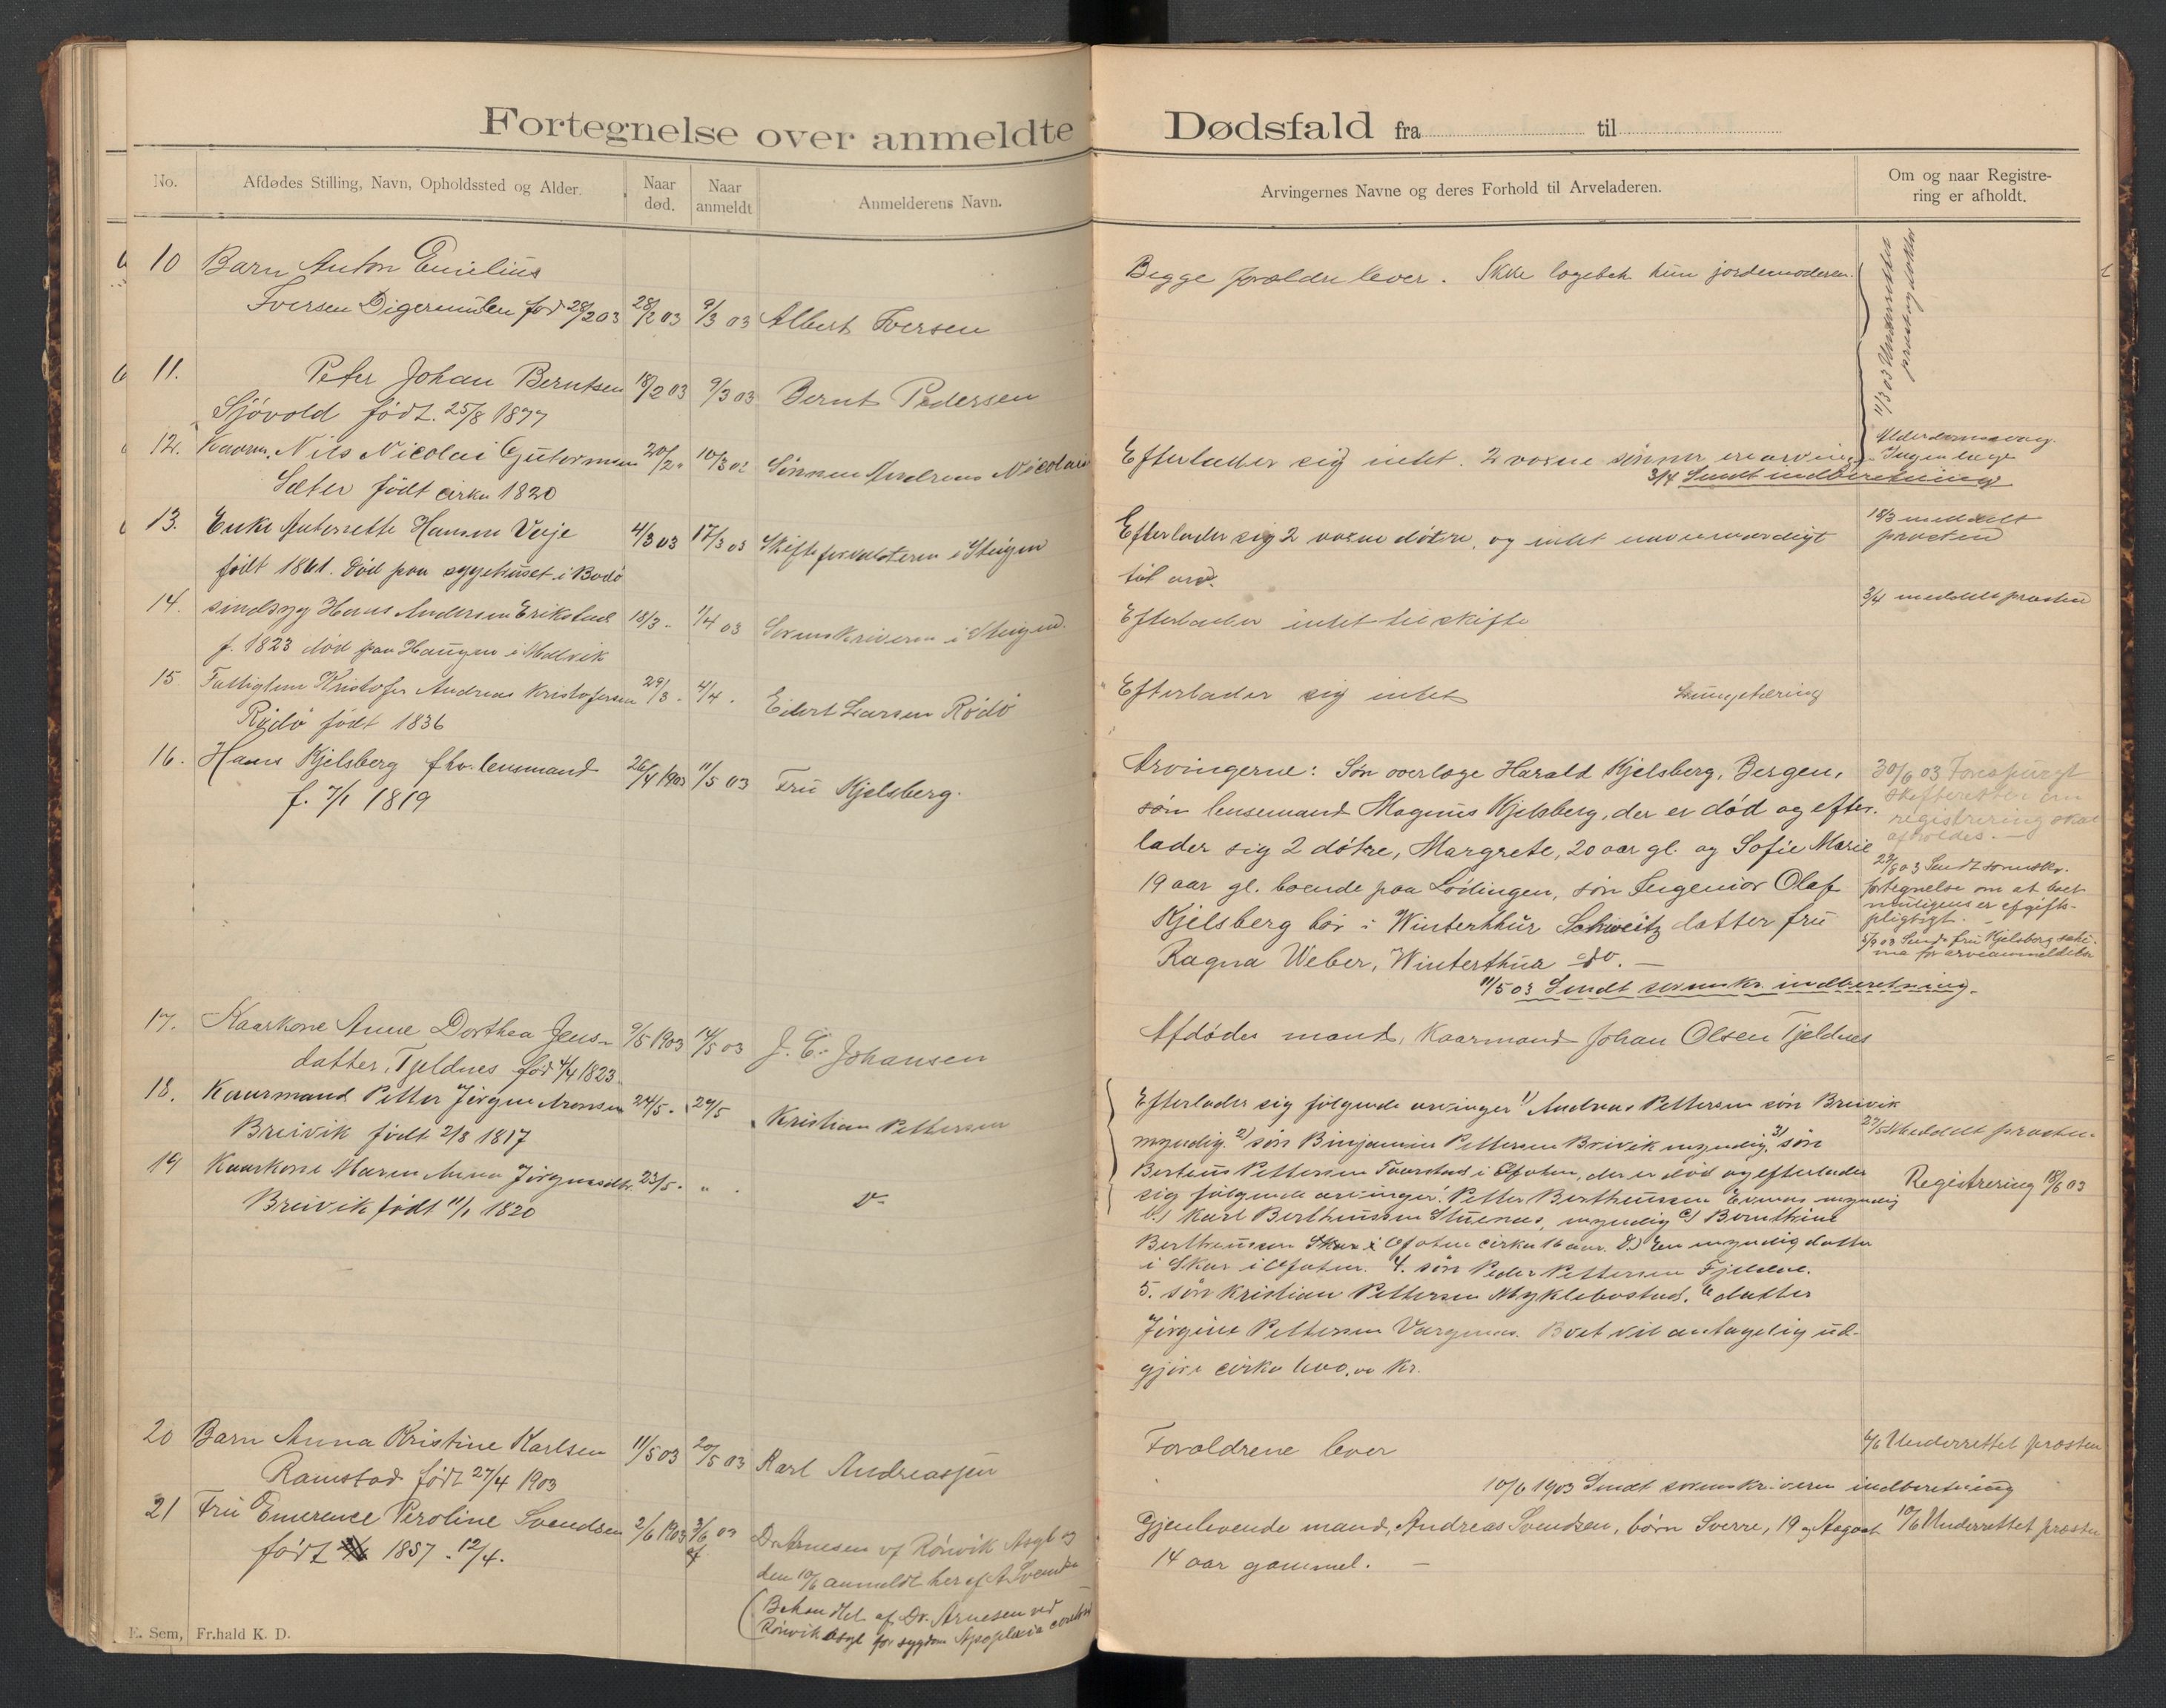 Fortegnelse over anmeldte Dødsfald fra til
No.
Afdødes Stilling, Navn, Opholdssted og Alder.
Naar død.
Naar anmeldt
Anmelderens Navn.
Arvingernes Navne og deres Forhold til Arveladeren.
Om og naar Registrering er afholdt.
10 Barn Anton Emilius
Iversen Digermulen fød 28/2 03 28/2 03 9/3 03 Albert Iversen
Begge forældre lever. Ikke lægebeh kun jordemoderen.
11/3 03 Underrettet
prost og doktor
11. Peter Johan Berntsen 18/2 03 9/3 03 Bernt Pedersen
Sjövold født. 25/8 1877
12. Kaarm. Nils Nicolai Guttormsen 20/2 " 10/3 02 Sönnen Andreas Nicolai
Sæter født cirka 1820
Efterlader sig intet. 2 voxne sönner er arvinger
Alderdomssvag.
Ingen læge
3/4 Sendt indberetning
13. Enke Anternette Hansen Veje 4/3 03 17/3 03 Skifteforvalteren i Steigen
født 1861. Död paa sygehuset i Bodö
Efterlader sig 2 voxne döttre, og intet nævneværdigt
til arv.
18/3 meddelt
prosten
14. sindsyg Hans Andersen Erikstad 18/3 - 1/4 03 Sorenskriveren i Steigen.
f. 1823 död paa Haugen i Malvik
Efterlader intet til skifte
3/4 meddelt prosten
15. Fattiglem Kristofer Andreas Kristofersen 29/3 - 4/4 . Edert Larsen Rödö
Rödö født 1836
Efterlader sig intet Lungetæring
16. Hans Kjelsberg fhv. lensmand 26/4 1903 11/5 03 Fru Kjelsberg.
f. 7/1 1819
Arvingerne: Sön overlæge Harald Kjelsberg, Bergen,
sön lensemand Magnus Kjelsberg, der er död og efter-
lader sig 2 döttre, Margrete, 20 aar gl. og Sofie Marie
19 aar gl. boende paa Lödingen, sön Ingeniör Olaf
Kjelsberg bor i Winterthur Schweitz datter fru
Ragna Weber, Winterthur do. —
11/5 03 Sendt sorenskr. indberetning.
30/6 03 Forespurgt
skifteretten om
registrering skal
afholdes. —
29/8 03 Sendt sorenskr.
fortegnelse om at boet
muligens er afgifts-
pligtigt. —
5/9 03 Sendt fru Kjelsberg sche-
ma for arveanmeldelse
17. Kaarkone Anne Dorthea Jens- 9/5 1903 14/5 03 J. C. Johansen
datter, Tjeldnes fød 4/4 1823
Afdödes mand, Kaarmand Johan Olsen Tjeldnes
18. Kaarmand Petter Jörgen Aronsen 24/5 - 29/5 Kristian Pettersen
Breivik født 2/8 1817
19 Kaarkone Maren Anna Jörgensdtr. 23/5 - " .
Breivik født 11/1 1820
Efterlader sig følgende arvinger 1) Andreas Pettersen sön Breivik
myndig. 2) sön Binjamin Pettersen Breivik myndig, 3) sön
Berteus Pettersen Taarstad i Ofoten, der er död og efterlader
sig følgende arvinger: Petter Bertheussen Evenes myndig
b.) Karl Bertheussen Stuenes, myndig c) Bernthine
Bertheussen Skar i Ofoten cirka 16 aar. D.) En myndig datter
i Skar i Ofoten. 4. sön Peder Pettersen Fjeldal.
5. sön Kristian Pettersen Myklebostad. 6 datter
Jörgine Pettersen Vargenes. Boet vil antagelig ud-
gjöre cirka 1600.00 Kr.
29/5 Meddelt prosten
Registrering 18/6 03
20 Barn Anna Kristine Karlsen 11/5 03 20/5 03 Karl Andreassen
Ramstad født 27/4 1903
Forældrene lever
6/6 Underrettet prosten
10/6 1903 Sendt sorenskriveren indberetning
21 Fru Emerence Peroline Svendsen 2/6 1903 3/6 03 Dr. Arnesen vf Rönvik Asyl og
født 1857 . 12/4. af
den 10/6 anmeldt her af A Svends
(Behandlet af Dr. Arnesen ved
Rönvik Asyl for sygdom Apoplexia
Gjenlevende mand, Andreas Svendsen, börn Sverre, 19 og Aagoat
14 aar gammel. —
10/6 Underrettet prosten
E. Sem, Fr.hald K. D.